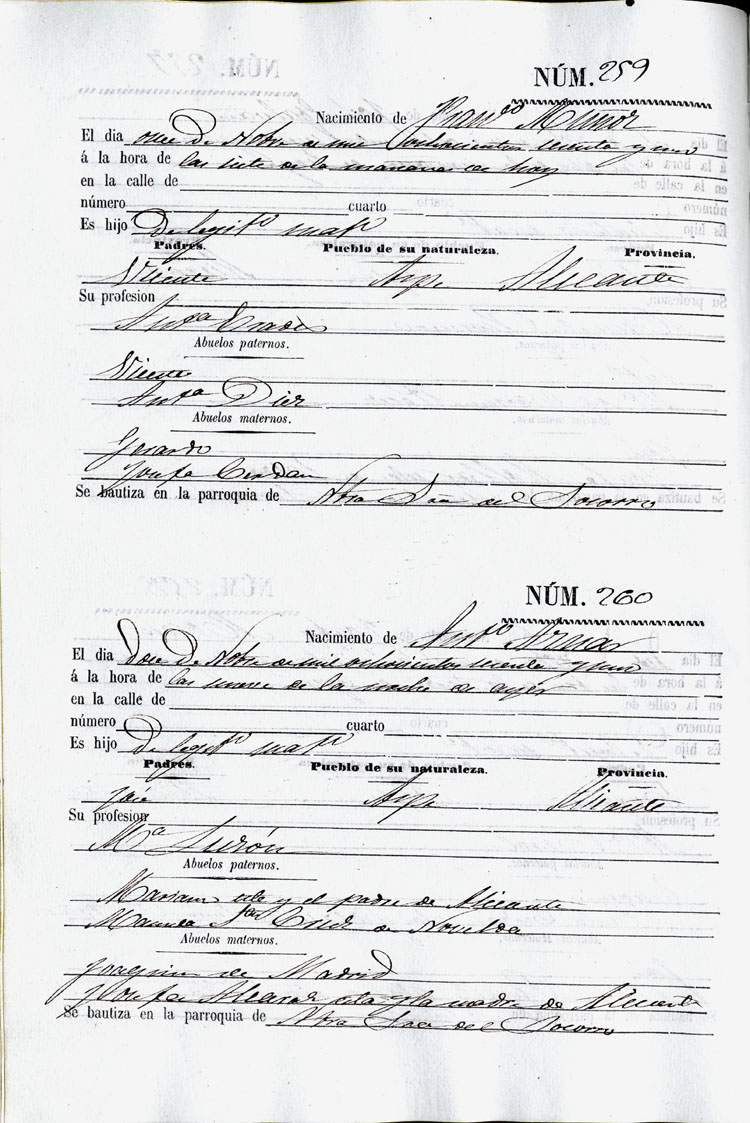 NÚM. 259
Nacimiento de Fran.co Muñoz
El dia once D Nobre de mil ochocientos secenta y uno
á la hora de las siete de la mañana de hoy
en la calle de
número cuarto
Es hijo De legit.o mat.o
Padres. Pueblo de su naturaleza. Provincia.
Vicente Aspe Alicante
Su profesion
Ant.a
Abuelos paternos.
Vicente
Ant.a Diez
Abuelos maternos.
Gerardo
Josefa Cerdan
Se bautiza en la parroquia de Ntra Sra del Socorro
NÚM. 260
Nacimiento de Ant.o Aznar
El dia doce D Nobre de mil ochocientos secenta y uno
á la hora de las nueve de la noche de ayer
en la calle de
número cuarto
Es hijo De legit.o mat.o
Padres. Pueblo de su naturaleza. Provincia.
José Aspe Alicante
Su profesion
M.a
Abuelos paternos.
Mariano este y el padre de Alicante
Manuela Cruz de Novelda
Abuelos maternos.
Joaquin de Madrid
Josefa esta y la madre de Alicante
Se bautiza en la parroquia de Ntra Sra del Socorro